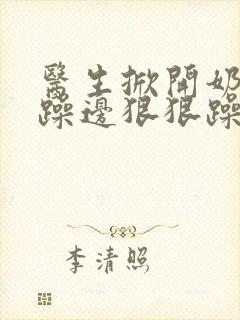 醫生掀開奶
躁邊狠狠躁
李清照